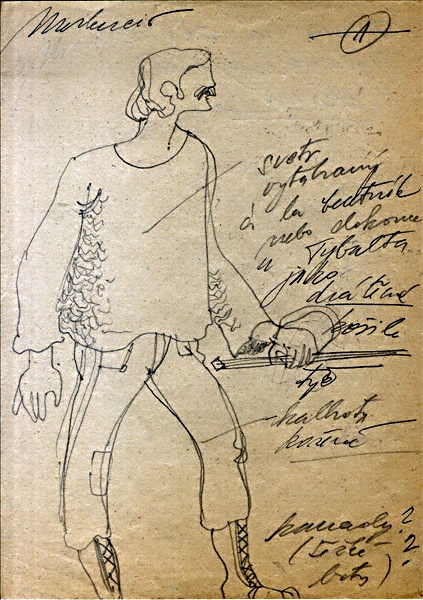 Mercucio
1
svetr
vytahaný
á la beatnik
nebo dokonce
u Tybalta
jako
drátěná
košile
tyč
kalhoty
kožené
kanady?
(těžké ?
boty)